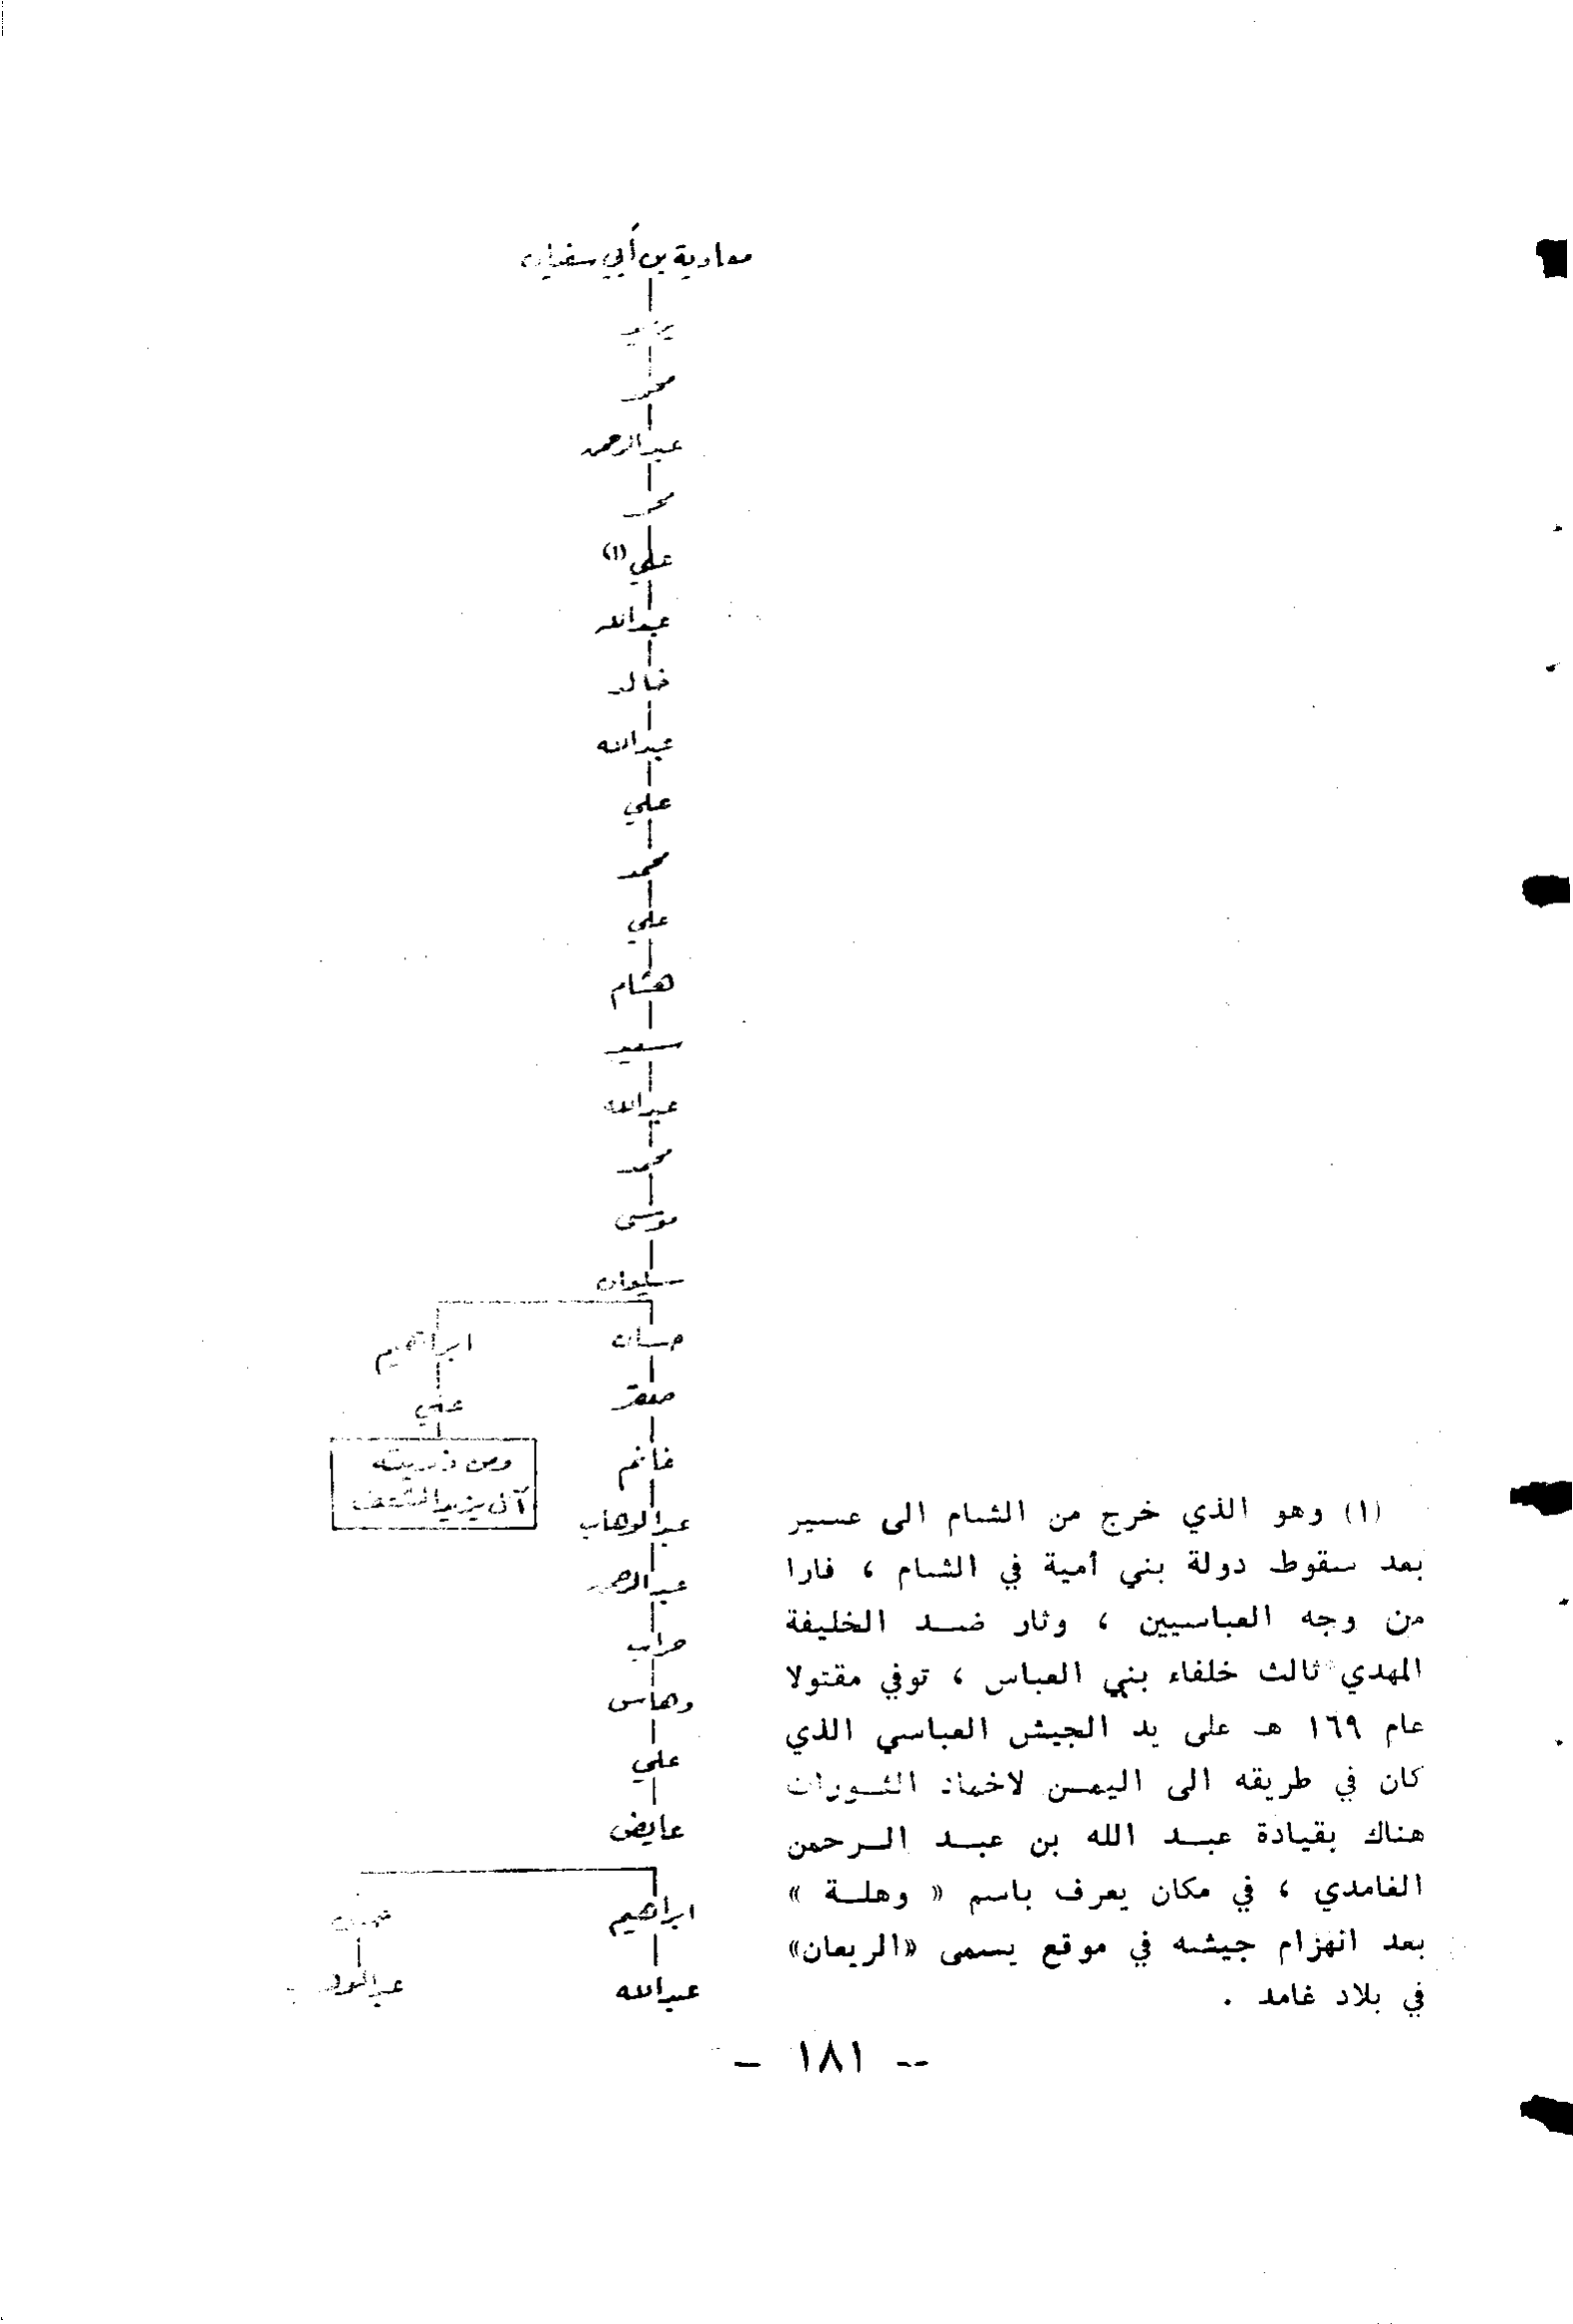 معاوية بن أبي سفيان
يزيد
محمد
عبدالرحمن
محمد
علي (١)
عبدالله
خالد
عبدالله
علي
محمد
علي
هشام
سعيد
عبدالله
محمد
موسى
سليمان
حسان
ابراهيم
صقر
علي
غانم
ومن ذريته
آل يزيد
عبدالوهاب
عبدالرحمن
حراب
وهاس
علي
عايض
ابراهيم
عبدالله
(١) وهو الذي خرج من الشام الى عسير
بعد سقوط دولة بني أمية في الشام ، فارا
من وجه العباسيين ، وثار ضد الخليفة
المهدي ثالث خلفاء بني العباس ، توفي مقتولا
عام ١٦٩ هـ على يد الجيش العباسي الذي
كان في طريقه الى اليمن لاخماد الثورات
هناك بقيادة عبد الله بن عبد الرحمن
الغامدي ، في مكان يعرف باسم « وهلة »
بعد انهزام جيشه في موقع يسمى «الريعان»
في بلاد غامد .
- ١٨١ -